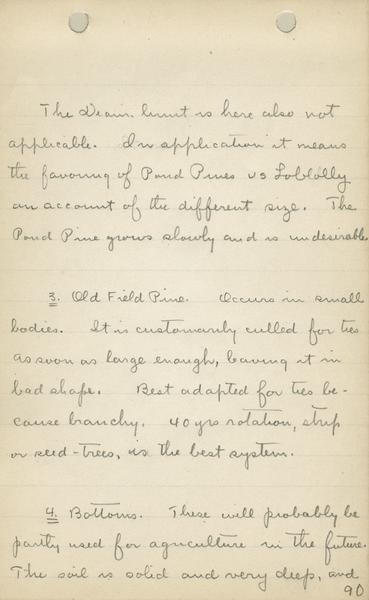 The Diam. limit is here also not
applicable. In application it means
the favoring of Pond Pines vs Loblolly
on account of the different size. The
Pond Pine grows slowly and is undesirable.
3. Old Field Pine. Occurs in small
bodies. It is customarily culled for ties
as soon as large enough, leaving it in
bad shape. Best adapted for ties be-
cause branchy. 40 yrs rotation, strip
or seed-trees, is the best system.
4. Bottoms. These will probably be
partly used for agriculture in the future.
The soil is solid and very deep, and
90